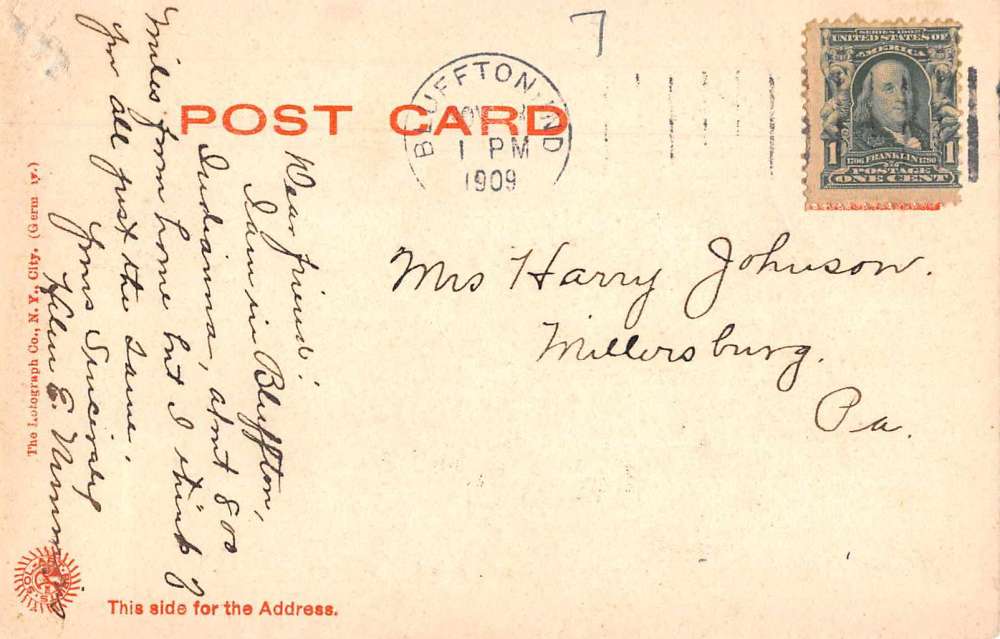 POST CARD
BLUFFTON, IND
1 PM
1909
SERIES 1902
UNITED STATES OF
AMERICA
1 1
1706 FRANKLIN 1790
POSTAGE
ONE CENT
7
Dear friend:
I am in Bluffton,
Indianna, abnt 800
miles from home but I think of
you all just the same.
Yours Sincerely
Helen E.
Mrs Harry Johnson.
Millersburg.
Pa.
The Rotograph Co., N. Y., City. (Germany.)
This side for the Address.